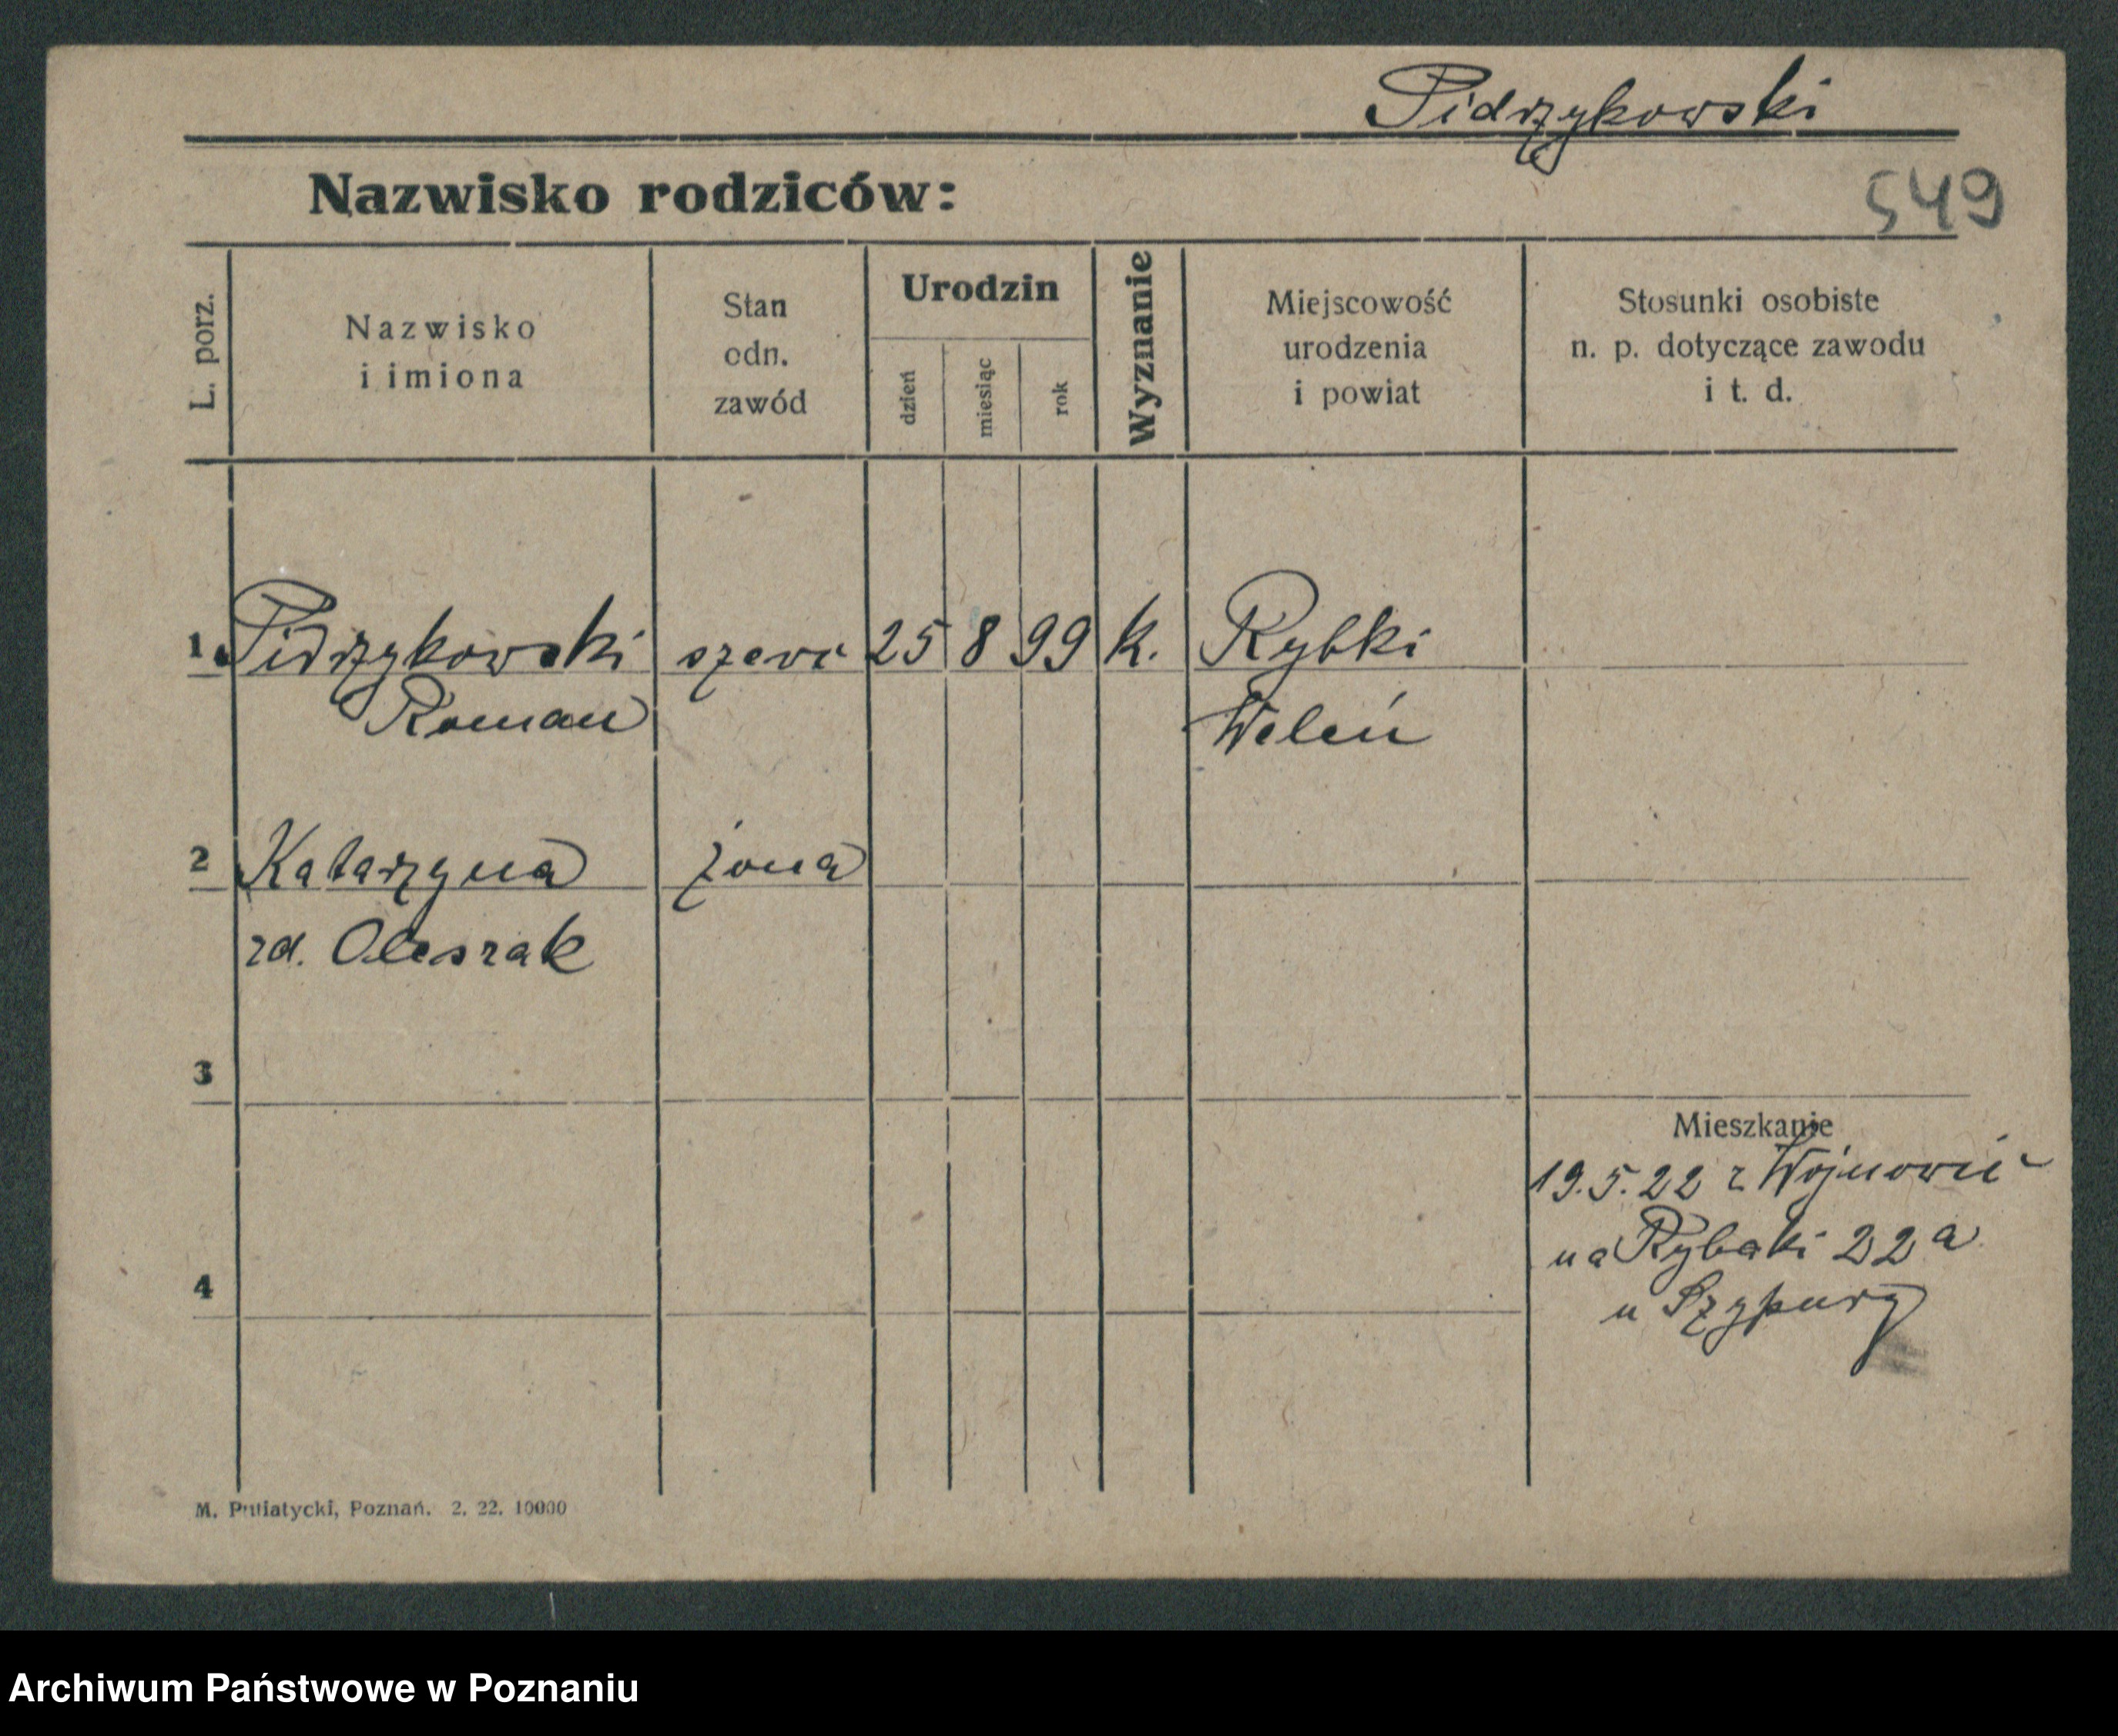 Pidrzykowski
Nazwisko rodziców:
549
L. porz.
Nazwisko
i imiona
Stan
odn.
zawód
Urodzin
dzień
miesiąc
rok
Wyznanie
Miejscowość
urodzenia
i powiat
Stosunki osobiste
n. p. dotyczące zawodu
i t. d.
1. Pidrzykowski szewc 25 8 99 k. Rybki
Roman Weleń
2 Katarzyna żona
zd. Oleszak
3
Mieszkanie
19.5.22 z Wojnowic
na Rybaki 22a
4
u Szypury
M. Putiatycki, Poznań. 2. 22. 10000
Archiwum Państwowe w Poznaniu